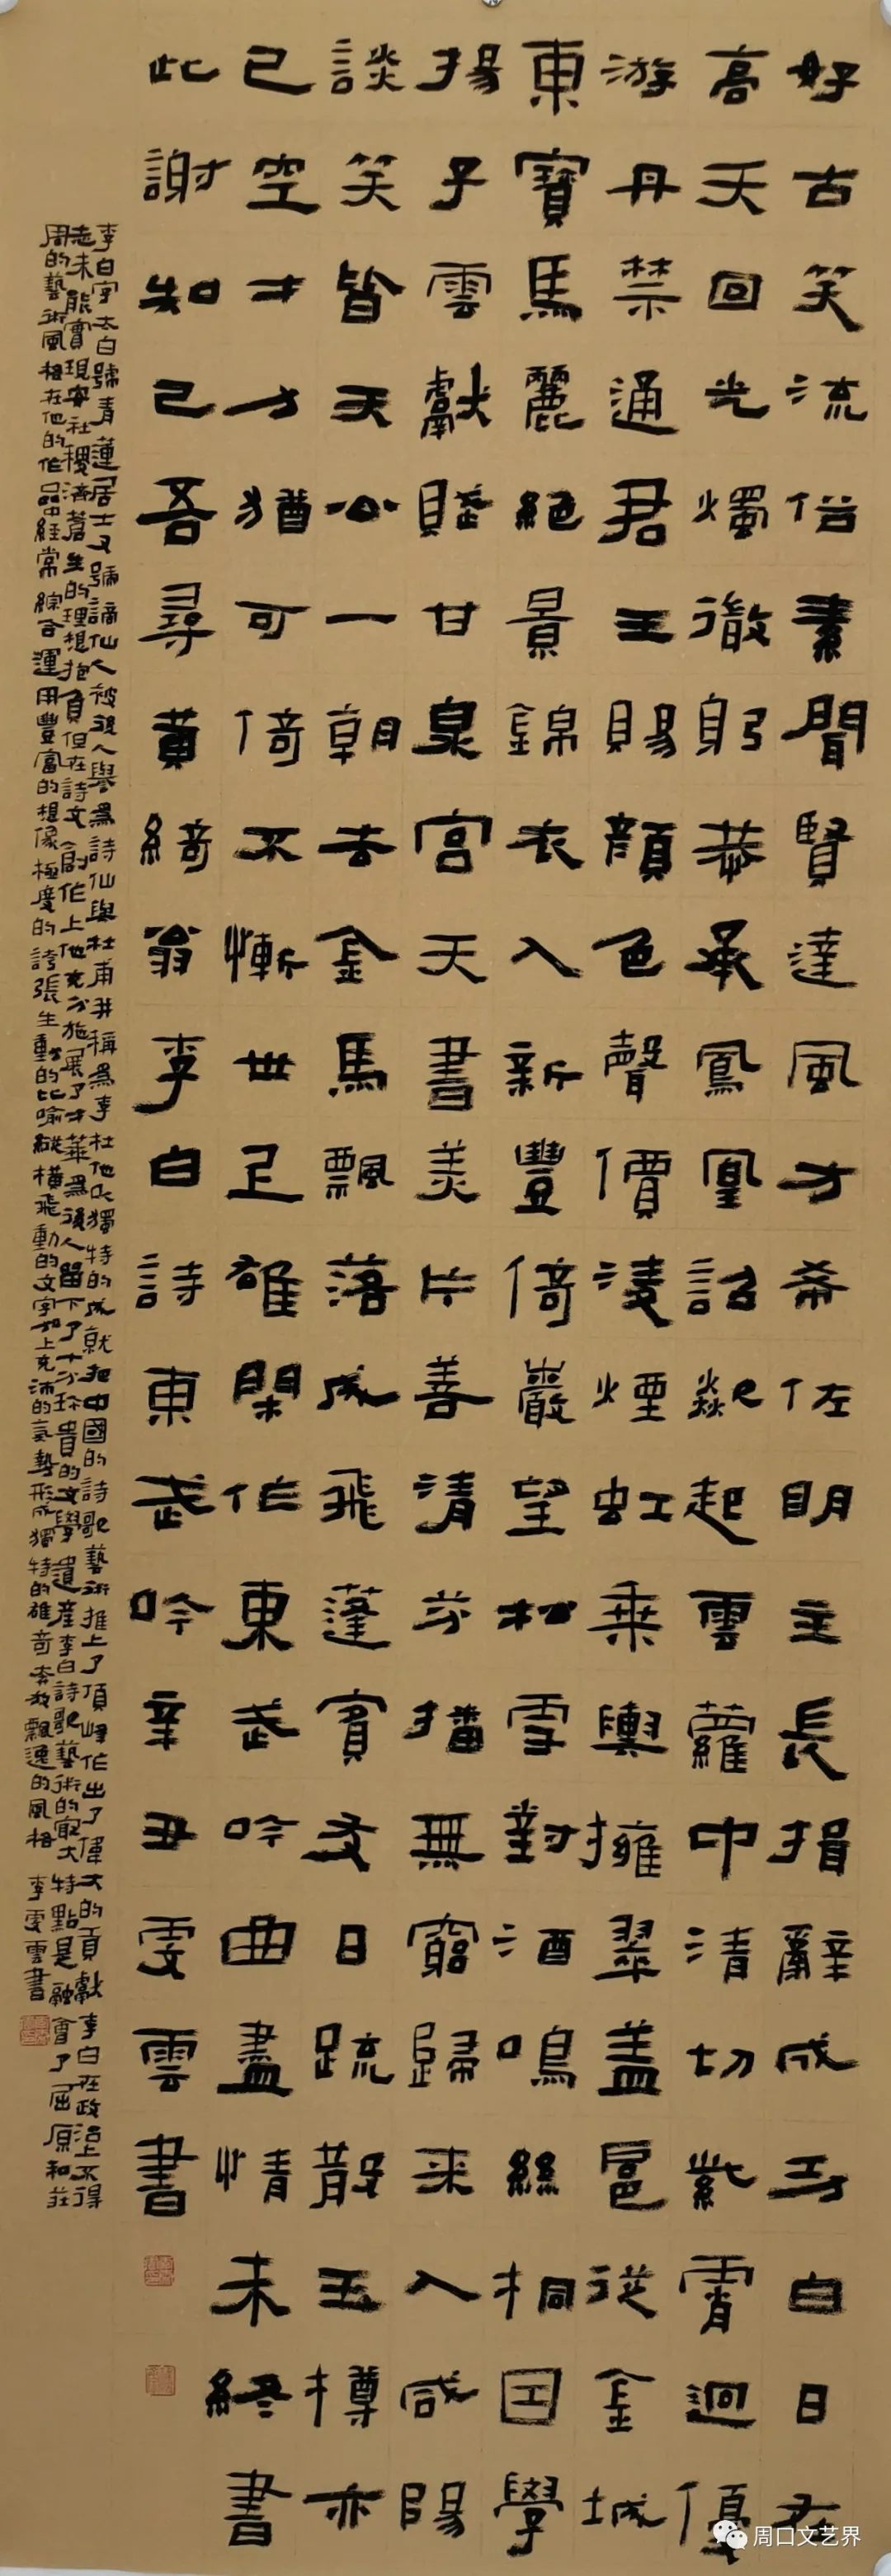 好古笑流俗素聞賢達風方希佐明主長揖辭成功白日在
高天回光燭微躬恭承鳳凰詔歘起雲蘿中清切紫霄迥優
游丹禁通君王賜顏色聲價凌煙虹乘輿擁翠盖扈從金城
東寶馬麗絕景錦衣入新豐倚巖望松雪對酒鳴絲桐因學
揚子雲獻賦甘泉宮天書美片善清芬播無窮歸来入咸陽
談笑皆王公一朝去金馬飄落成飛蓬賓友日疏散玉樽亦
已空才力猶可倚不慚世上雄閑作東武吟曲盡情未終書
此謝知己吾尋黃綺翁李白詩東武吟辛丑雯雲書
李白字太白號青蓮居士又號謫仙人被後人譽為詩仙與杜甫并稱為李杜他以獨特的成就把中國的詩歌藝術推上了頂峰作出了偉大的貢獻李白在政治上不得
志未能實現安社稷濟蒼生的理想抱負但在詩文創作上他充分施展了才華為後人留下了十分珍貴的文學遺產李白詩歌藝術的最大特點是融會了屈原和莊
周的藝術風格在他的作品中經常綜合運用豐富的想像極度的誇張生動的比喻縱橫飛動的文字加上充沛的氣勢形成獨特的雄奇奔放飄逸的風格 李雯雲書
周口文艺界